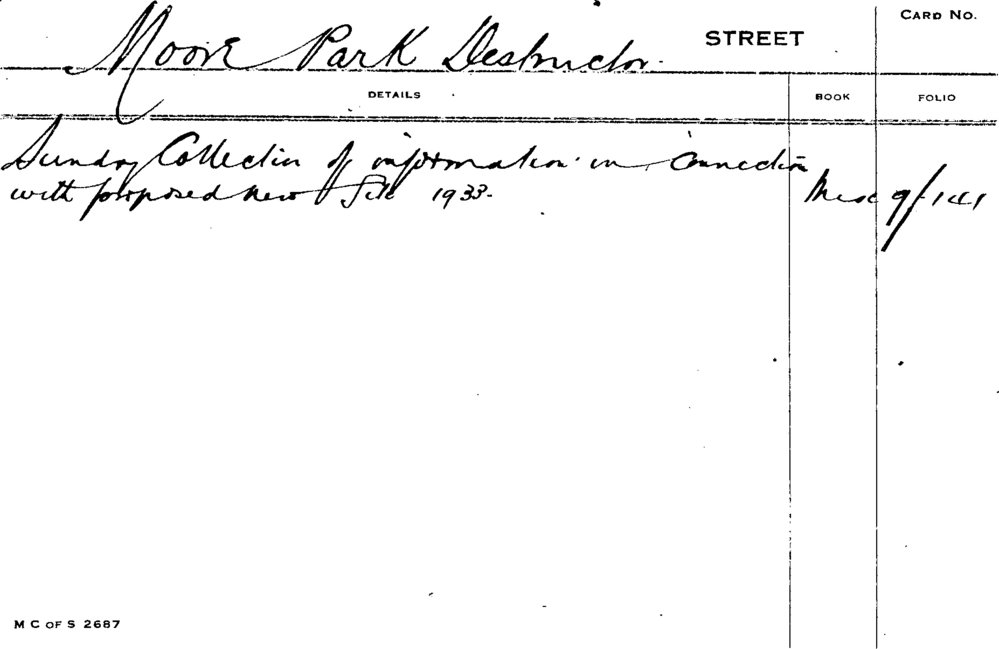 Moore Park Destructor. STREET CARD NO.
DETAILS BOOK FOLIO
Sundry Collection of information in connection
with proposed new Site 1933. Misc 9/141
M C OF S 2687